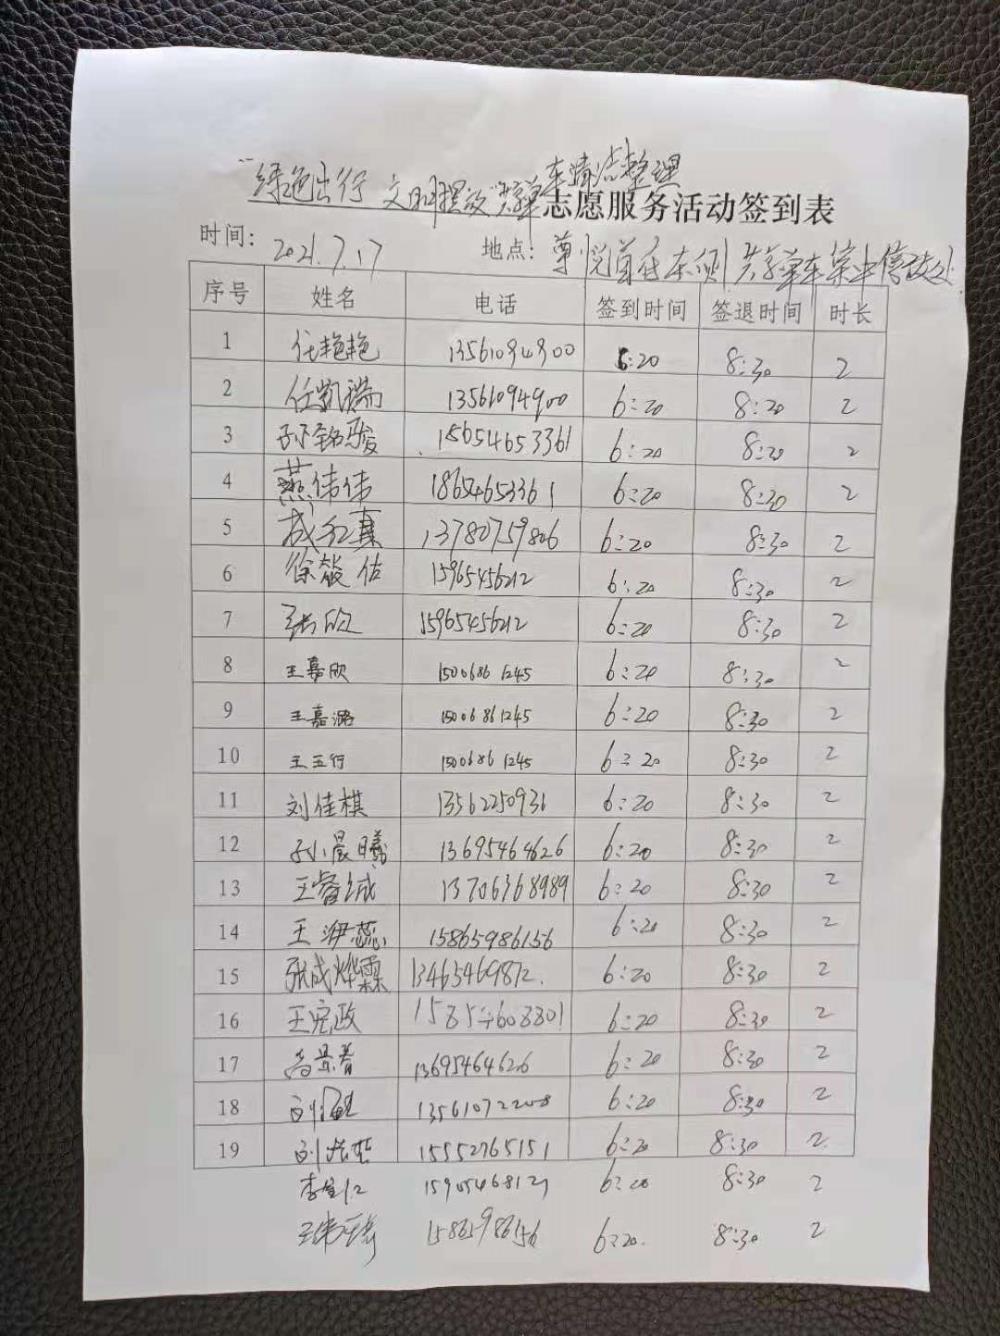 “绿色出行 文明摆放”共享单车清洁整理
志愿服务活动签到表
时间: 2021.7.17 地点: 尊悦首府东侧 共享单车集中停放处
序号 姓名 电话 签到时间 签退时间 时长
1 任艳艳 13561094900 6:20 8:30 2
2 任凯瑞 13561094900 6:20 8:20 2
3 孙铭骏 18654653361 6:20 8:20 2
4 燕伟伟 18654653361 6:20 8:30 2
5 成红真 13780759806 6:20 8:30 2
6 徐 佑 15965456212 6:20 8:30 2
7 张欣 15965456212 6:20 8:30 2
8 王嘉欣 15006861245 6:20 8:30 2
9 王嘉潞 15006861245 6:20 8:30 2
10 王玉行 15006861245 6:20 8:30 2
11 刘佳棋 13562250931 6:20 8:30 2
12 孙小晨曦 13695464626 6:20 8:30 2
13 王睿诚 13706368989 6:20 8:30 2
14 王渺蕊 15865986156 6:20 8:30 2
15 张成烨霖 13465469872 6:20 8:30 2
16 王宪政 6:20 8:30 2
17 尚景春 13695464626 6:20 8:30 2
18 刘 13561072208 6:20 8:30 2
19 刘 15552765151 6:20 8:30 2
李 15905468127 6:20 8:30 2
王 15865986156 6:20. 8:30 2